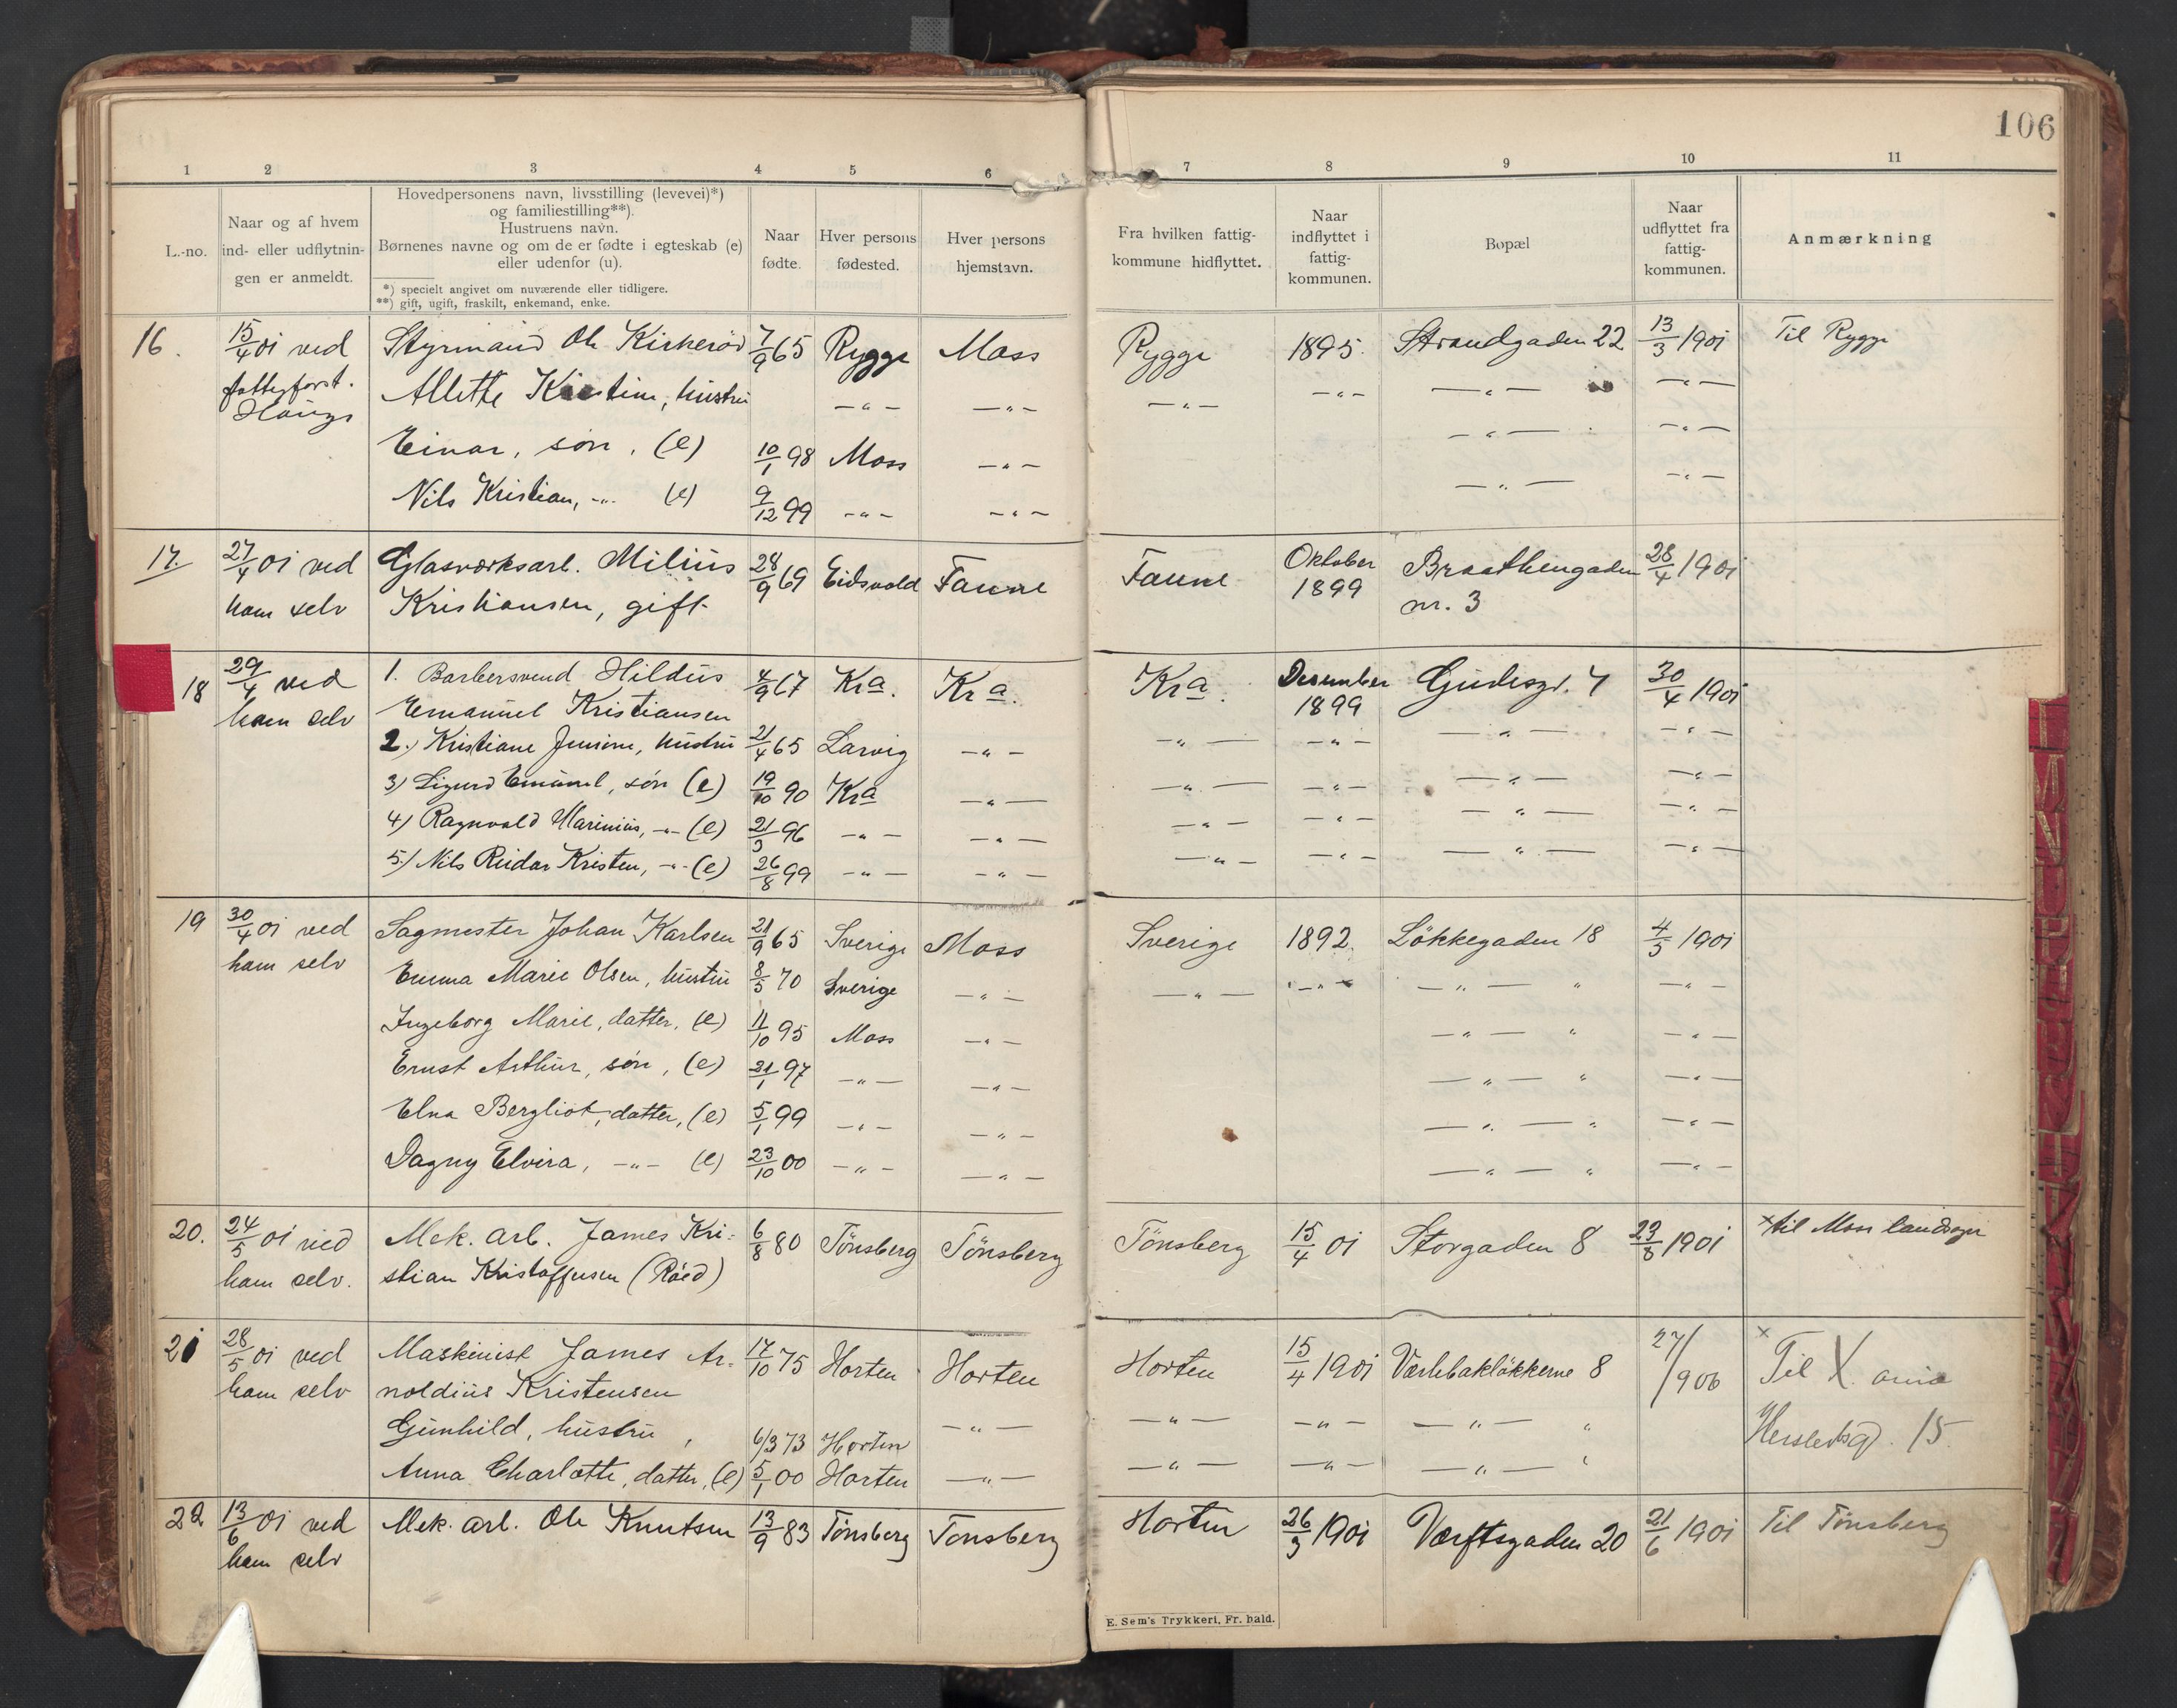 106
1 2 3 4 5 6 7 8 9 10 11
L.-no.
Naar og af hvem
ind- eller udflytnin-
gen er anmeldt.
Hovedpersonens navn, livsstilling (levevei)*)
og familiestilling**).
Hustruens navn.
Børnenes navne og om de er fødte i egteskab (e)
eller udenfor (u).
*) specielt angivet om nuværende eller tidligere.
**) gift, ugift, fraskilt, enkemand, enke.
Naar
fødte.
Hver persons
fødested.
Hver persons
hjemstavn.
Fra hvilken fattig-
kommune hidflyttet.
Naar
indflyttet i
fattig-
kommunen.
Bopæl
Naar
udflyttet fra
fattig-
kommunen.
Anmærkning
16. 15/4 01 ved Styrmand Ole Kirkerød 7/9 65 Rygge Moss Rygge 1895. Strandgaden 22 13/3 1901 Til Rygge
fattigforst. Allette Kirstine, hustru —„— —„— —„— —„— —„— —„—
Haugs
Einar, søn, (e) 10/1 98 Moss —„— —„— —„—
Nils Kristian, -„- (e) 9/12 99 -„- -„- —„— -„-
17. 27/4 01 ved Glasværksarb. Milius 28/9 69 Eidsvold Taune Taune Oktober 1899 Braathengaden 28/4 1901
ham selv Kristiansen, gift. nr. 3
18 29/4 ved 1. Barbersvend Hildus 4/9 67 Kra. Kra. Kra. Desember 1899 Gudesgd. 7 30/4 1901
ham selv Emanuel Kristiansen
2.) Kristiane Jensine, hustru 21/4 65 Larvig -„- -„- -„- -„- -„-
3) Sigurd Emanuel, søn (e) 19/10 90 Kra -„- -„- -„- -„- -„-
4) Ragnvald Marinius, -„- (e) 21/3 96 -„- -„- -„- -„- -„- -„-
5.) Nils Reidar Kristen, -„- (e) 26/8 99 -„- -„- -„- -„- -„- -„-
19 30/4 01 ved Sagmester Johan Karlsen 21/9 65 Sverige Moss Sverige 1892. Løkkegaden 18 4/5 1901
ham selv Emma Marie Olsen, hustru 8/5 70 Sverige -„- -„- -„- -„- „ -„-
Ingeborg Marie, datter, (e) 11/10 95 Moss -„- -„- „ -„-
Ernst Arthur, søn, (e) 21/1 97 -„- -„- -„- „ -„-
Elna Bergliot, datter, (e) 5/1 99 -„- -„- -„- „ -„-
Dagny Elvira, -„- (e) 23/10 00 -„- -„- -„- „ -„-
20. 24/5 01 ved Mek. arb. James Kri- 6/8 80 Tønsberg Tønsberg Tønsberg 15/4 01 Storgaden 8 23/8 1901 × til Moss landsogn
ham selv. stian Kristoffersen (Røed)
21 28/5 01 ved Maskinist James Ar- 17/10 75 Horten Horten Horten 15/4 1901 Værlebakløkkerne 8 27/ /906 × Til X. ania
ham selv noldius Kristensen
Gunhild, hustru, 6/3 73 Horten -„- -„- -„- -„- „ Herslebsgd. 15.
Anna Charlotte, datter, (e) 5/1 00 Horten -„- -„- -„- -„- „
22 13/6 01 ved Mek. arb. Ole Knutsen 13/9 83 Tønsberg Tønsberg Horten 26/3 1901 Værftsgaden 20 21/6 1901 Til Tønsberg
ham selv
E. Sem's Trykkeri, Fr. hald.